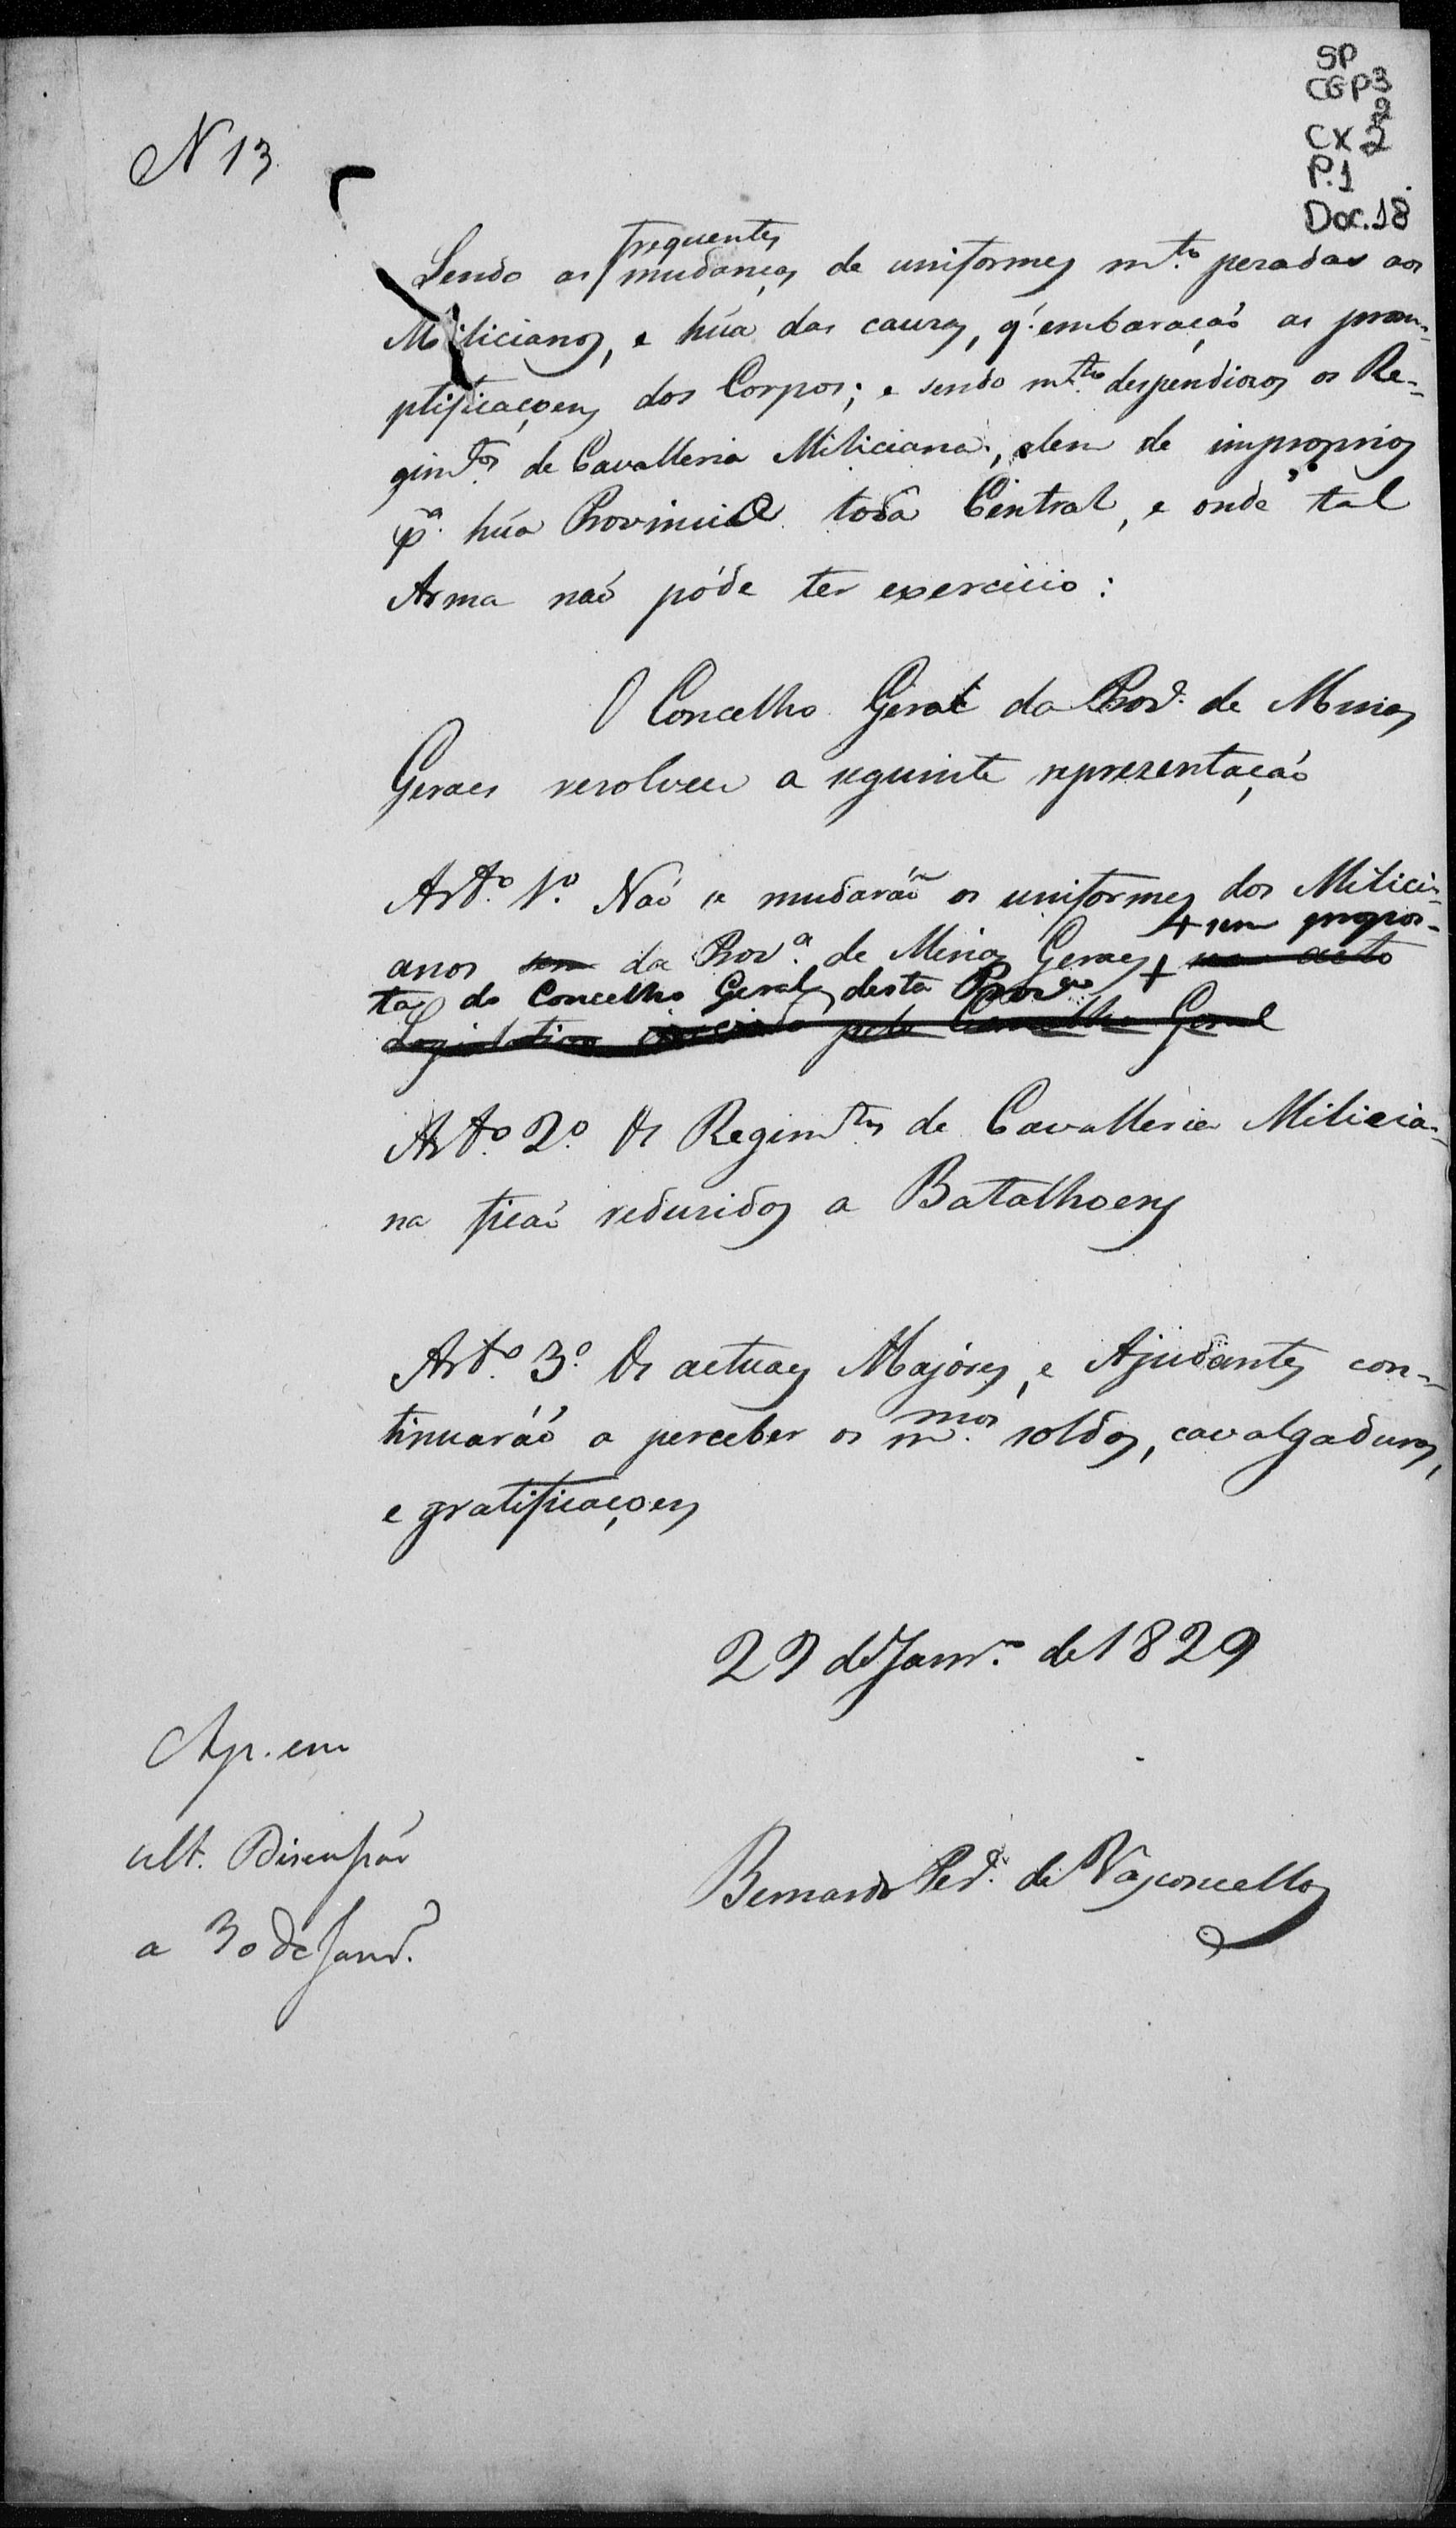 SP
CGP3
2
CX 2
P.1
Doc.18
N 13
frequentes
Sendo as mudanças de uniformes m.to pezadas aos
Milicianos, e húa das cauzas, q. embaração as prom-
ptificaçoens dos Corpos; e sendo m.to despendiozos os Re-
gim.tos de Cavalleria Miliciana, alem de improprios
p.a húa Provincia toda Central, e onde tal
Arma não póde ter exercicio:
O Concelho Geral da Prov.a de Minas
Geraes resolveu a seguinte reprezentação
Art.o 1.o Não se mudarão os uniformes dos Milici-
+ sem propos-
anos sem da Prov.a de Minas Geraes + acto
ta do Concelho Geral desta Prov.a
Legislativo pelo Concelho Geral
Art.o 2.o Os Regim.tos de Cavalleria Milicia-
na ficão reduzidos a Batalhoens
Art.o 3.o Os actuaes Majóres, e Ajudantes con-
tinuaráõ a perceber os m.mos soldos, cavalgaduras,
e gratificaçoens
de Janr.o de 1829
Ap. em
ult. Discussão
a 30 de Janr.o
Bernardo Per.a de Vasconcellos